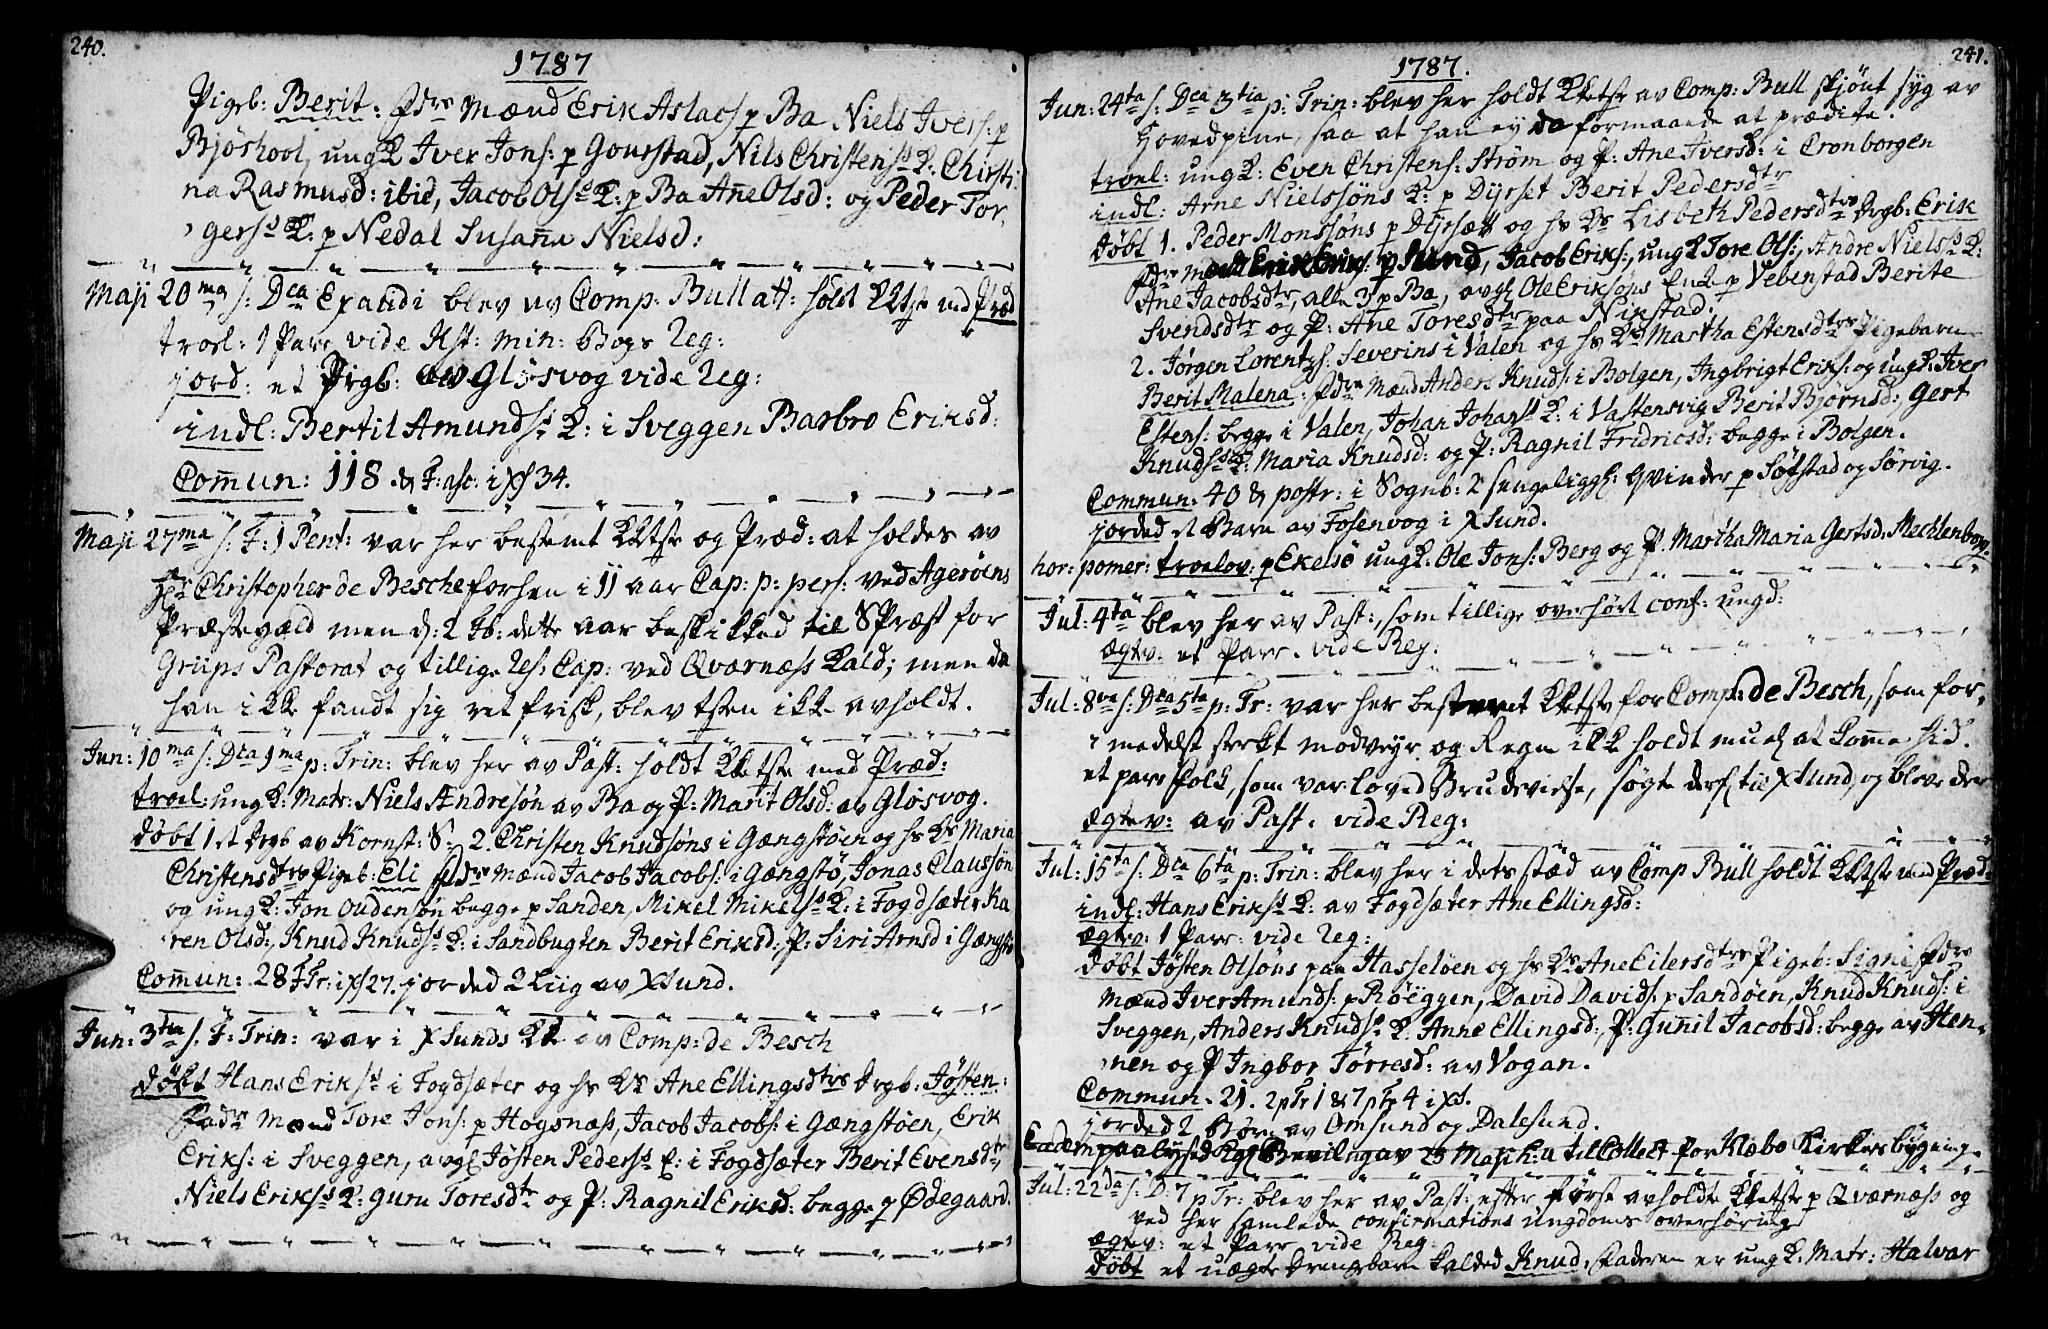 240.
1787
Pigeb: Berit: Fdre Mænd Erik Aslacs p Ba Niels Ivers: p
Bjørhool, ung K Iver Jons: p Gourstad, Nils Christens: K: Chirsti
na Rasmusd: ibid, Jacob Ols: K: p Ba Ane Olsd: og Peder Tor,
gers: K: p Nedal Susanne Nielsd:
Maji 20ma s: Dca Exaudi blev av Comp: Bull att: holdt KKtste med Præd
troel: 1 Parr vide Kst: min: Bogs Reg:
jord: et Pigb: av Gløsvog vide Reg:
indl: Bertil Amunds: K: i Sveggen Barbro Eriksd:
Comun: 118 & F: asc: i XS 34.
Maji 27ma s: F: 1 Pent: var her bestemt KKtste og Præd: at holdes av
Hr Christopher de Besche forhen i 11 aar Cap: p: pers: ved Agerøens
Præstegæld men d: 2 Fb: dette aar beskikked til SPræst for
Griips Pastorat og tillige Res: Cap: ved Qværness Kald; men da
han ikke fandt sig ret frisk, blev tsten ikke avholdt.
Jun: 10ma s: Dca 1ma p: Trin: blev her av Past: holdt KKtste med Præd:
troel: ung K: Matr: Niels Andresøn av Ba og P: Marit Olsd: av Gløsvog.
døbt 1 st Drgb av Kornst: S: 2. Christen Knudsøns i Gængstøen og hs Ks Maria
Christensdtrs Pigeb: Eli Fdre Mænd Jacob Jacobs: i Gængstø, Jonas Claussøn
og ung K: Jon Oudensøn begge p Sanden, Mikel Mikels: K: i Fogdsæter Ka
ren Olsd:, Knud Knuds: K: i Sandbugten Berit Eriksd:, P: Siri Arnsd i Gængstø
Comun: 28 FTr: i XS 27. jorded 2 Liig av XSund.
Jun: 3tia s. F: Trin: var i XSunds KK av Comp: de Besch
døbt Hans Eriks: i Fogdsæter og hs Ks Ane Ellingsdtrs Drgb: Jøsten:
Fadre Mænd Tore Jons: p Hogsnæss, Jacob Jacobs: i Gængstøen, Erik
Eriks: i Sveggen, avgl Jøsten Peders: E: i Fogdsæter Berit Evensdtr,
Niels Eriks: K: Guru Toresdtr og P: Ragnil Eriksd: begge p Ødegaard.
241.
1787.
Jun: 24ta s: Dca 3tia p: Trin: blev her holdt KKetste av Comp: Bull skjønt syg av
Hovedpine, saa at han ey da formaaede at prædike.
troel: ung K: Even Christens: Strøm og P: Ane Iversd: i Cronborgen
indl: Arne Nielssøns K: p Dyrset Berit Pedersdtr
døbt 1. Peder Monssøns p Dyrsæt og hs Ks Lisbeth Pedersdtrs Drgb: Erik
Fdre Mænd Erik Eriks: p Sund, Jacob Eriks:, ung K Tore Ols:, Andre Niels: K:
Ane Jacobsdtr, alle 3 p Ba, avgl Ole Eriksøns Enke p Vebenstad Berite
Svendsdtr og P: Ane Toresdtr paa Nikstad.
2. Jørgen Lorentzs: Severins i Valen og hs Ks Martha Estensdtrs Pigebarn
Berit Malena: Fdre Mænd Anders Knuds: i Bolgen, Ingbrigt Eriks: og ung K: Iver
Estens: begge i Valen, Johan Johans: K: i Vastensvig Berit Bjørnsd:, Gert
Knuds: K: Maria Knudsd: og P: Ragnil Fridricsd: begge i Bolgen.
Commun: 40 & postr: i Sognb: 2 sengeliggl: Qvinder p Søfstad og Sørvig.
jorded st Barn av Fosenvog i XSund.
hor: pomer: troelov: p Ekelsø ung K: Ole Jons: Berg og P. Martha Maria Gertsd: Mechlenborg.
Jul: 4ta blev her av Past:, som tillige overhørt conf: ungd:
ægtev: et Parr. vide Reg:
Jul: 8va s: Dca 5ta p: Tr: var her bestemt KKetste for Comp: de Besch, som for,
medelst sterkt modveyr og Regn ikk holdt muel at komme hid.
et par Folk, som var loved Brudevielse, søgte derf til XSund, og bleve der
ægtev: av Past: vide Reg:
Jul: 15ta s: Dca 6ta p: Trin: blev her i dets stæd av Comp Bull holdt KKtste med Præd:
indl: Hans Eriks: K: av Fogdsæter Ane Ellingsd:
ægtev: 1 Parr: vide Reg:
døbt Jøsten Olsøns paa Hasseløen og hs Ks Ane Eilersdtrs Pigeb: Signi Fdre
Mænd Iver Amunds: p Røeggen, David Davids: p Sandøen, Knud Knuds: i
Sveggen, Anders Knuds: K: Anne Ellingsd:, P: Gunnil Jacobsd: begge av Hen,
nen og P Ingbor Tørresd: av Vogan.
Commun: 21. 2 p Tr 1 & 7 p Tr 4 i XS.
jorded 2 Børn av Omsund og Dalesund.
Eadem paalysed Kgl Bevilng av 23 Maji h: a til Collect for Klæbo Kirkes bygning.
Jul: 22da s: D: 7 p Tr: blev her av Past: efter først avholdte KKetste p Qværness og
ved her samlede confirmations ungdoms overhøring
ægtev: et Parr vide Reg:
døbt et uægte Drengebarn kalded Knud, Faderen er ung K: Matr: Halvar